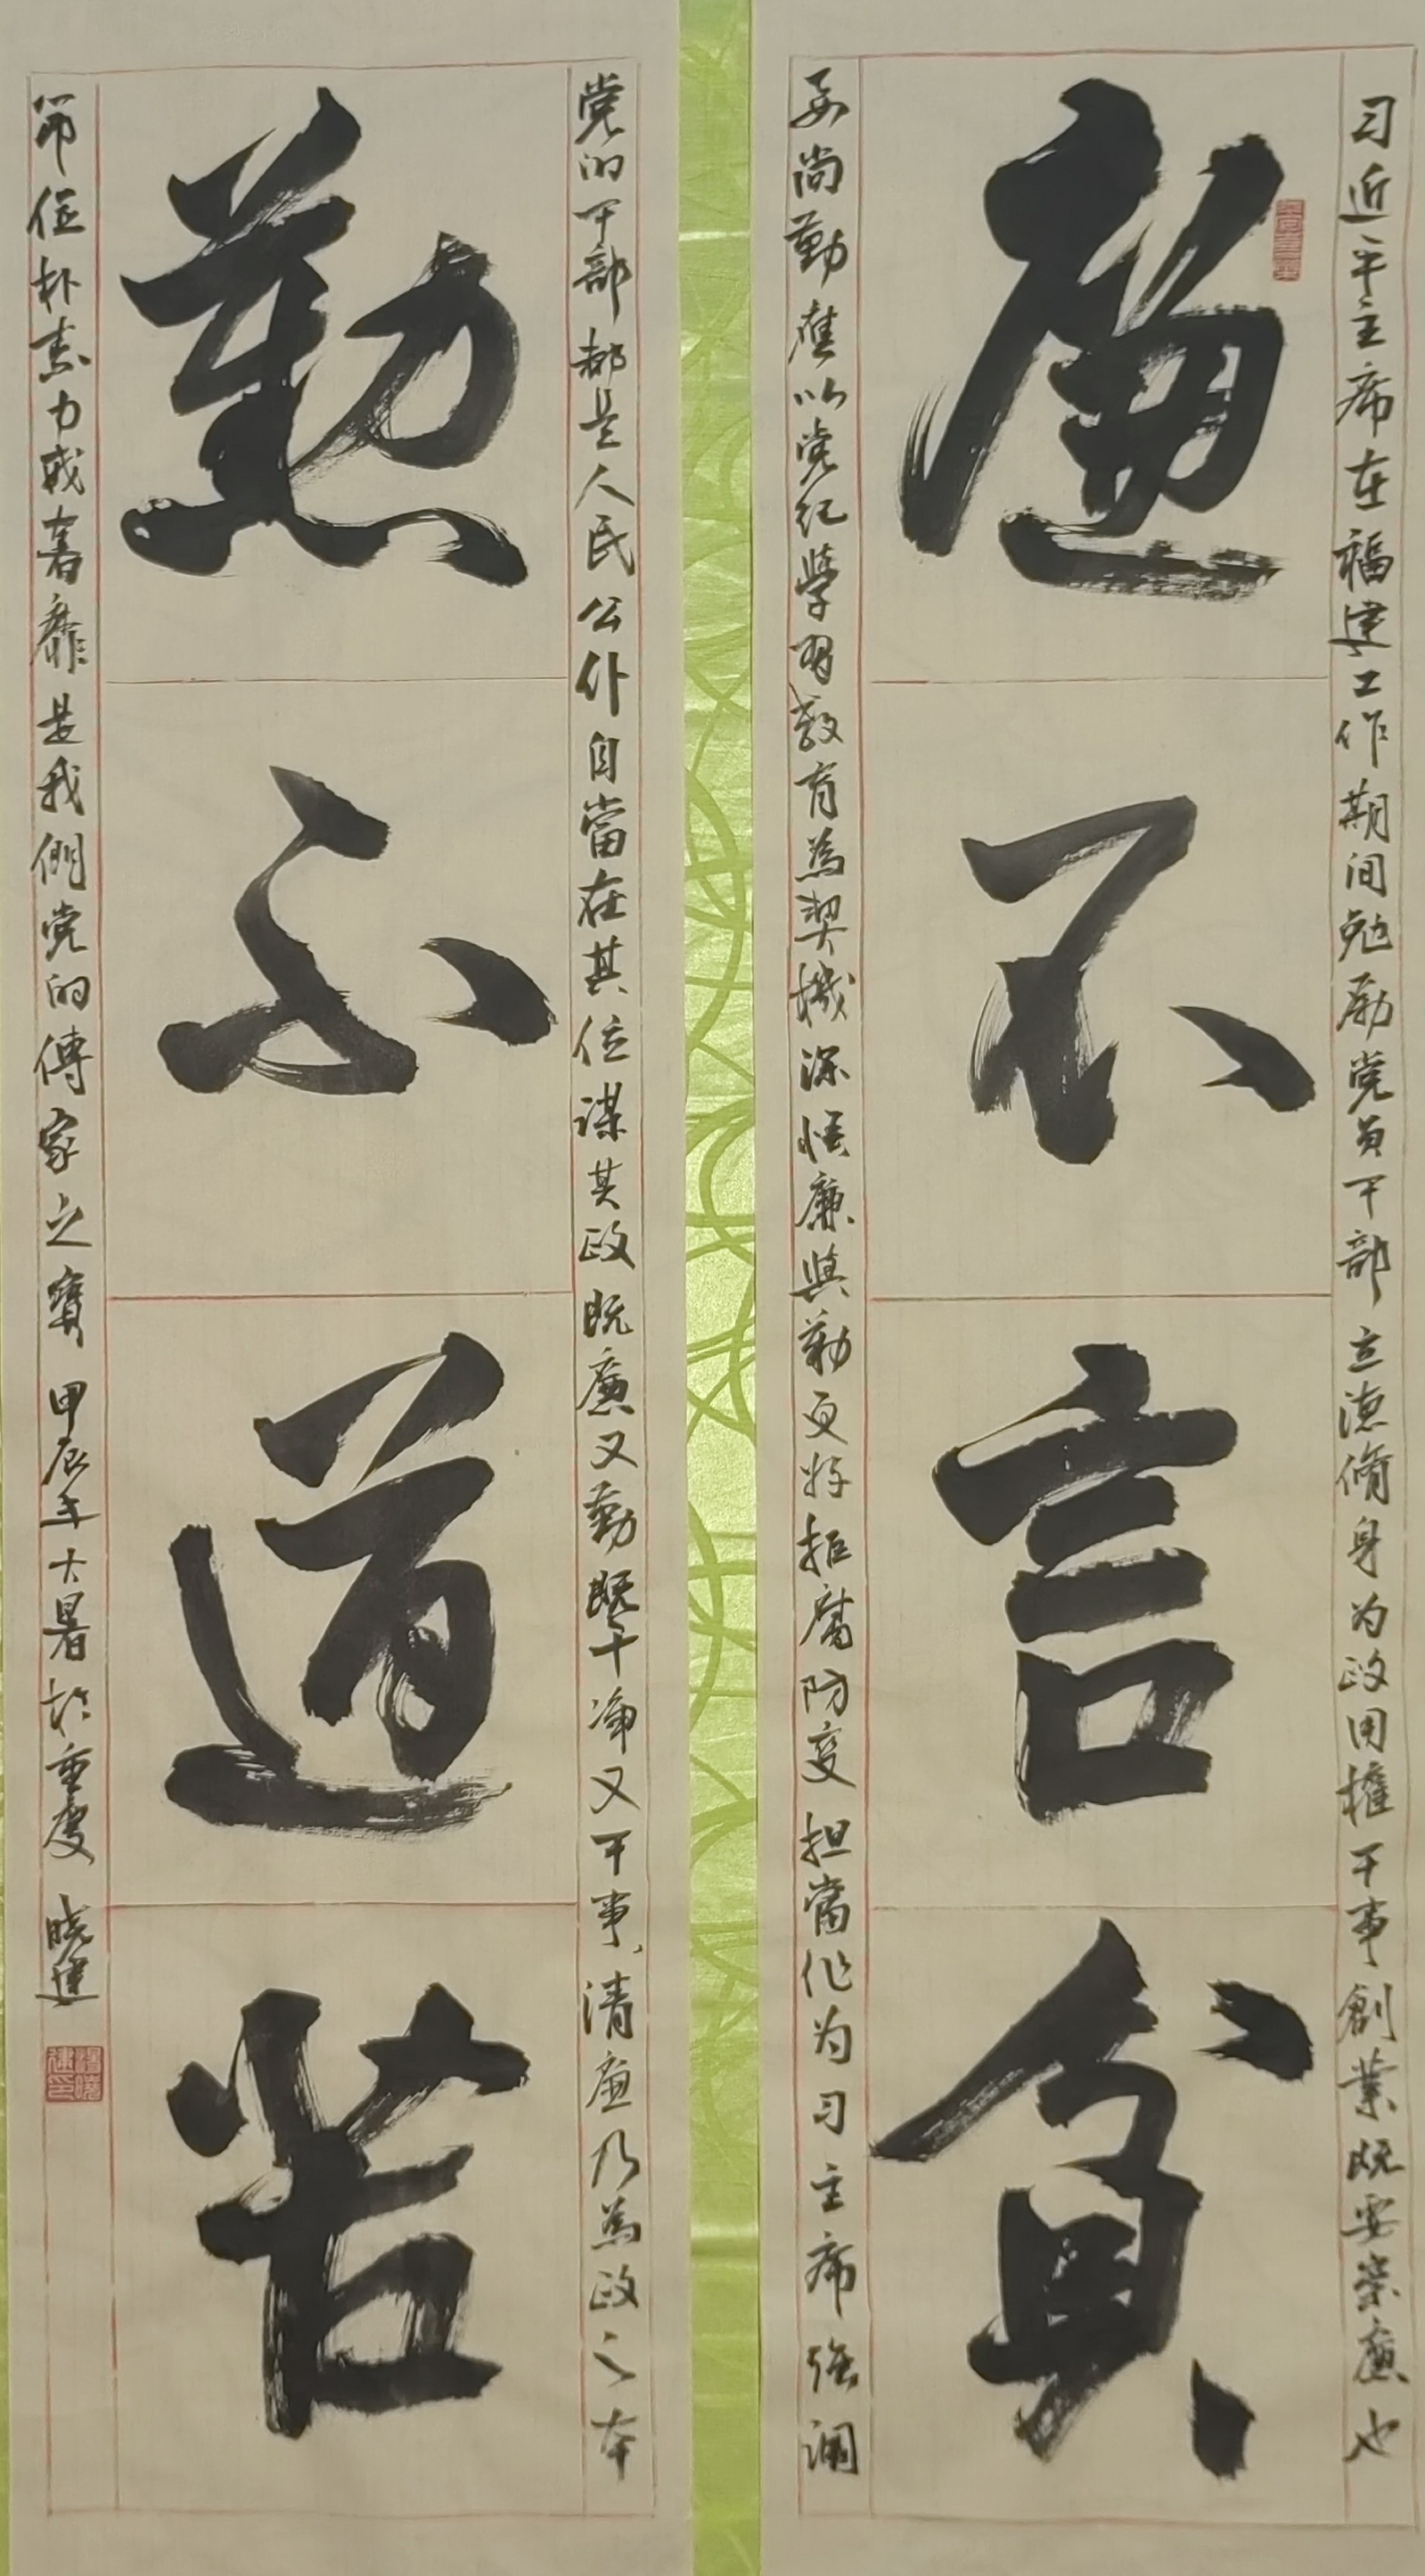 习近平主席在福建工作期间勉励党员干部立德脩身为政用權干事創業既要崇廉也
廉不言貧
要尚勤應以党纪學習教育為契機深悟廉與勤更好拒腐防变担當作为习主席强調
党的干部都是人民公仆自當在其位謀其政既廉又勤既干净又干事、清廉乃為政之本
勤不道苦
節儉朴素力戒奢靡是我們党的傳家之寶 甲辰年大暑於重慶 晓建